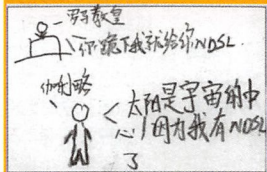 罗马教皇
你跪下我就给你NDSL
伽利略
太阳是宇宙的中
心!因为我有NDSL
了